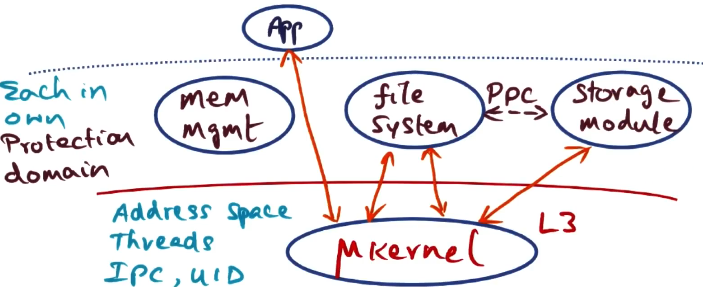 App
Each in
own
Protection
domain
mem
mgmt
file
System
PPC
Storage
module
Address Space
Threads
IPC, UID
μkernel
L3